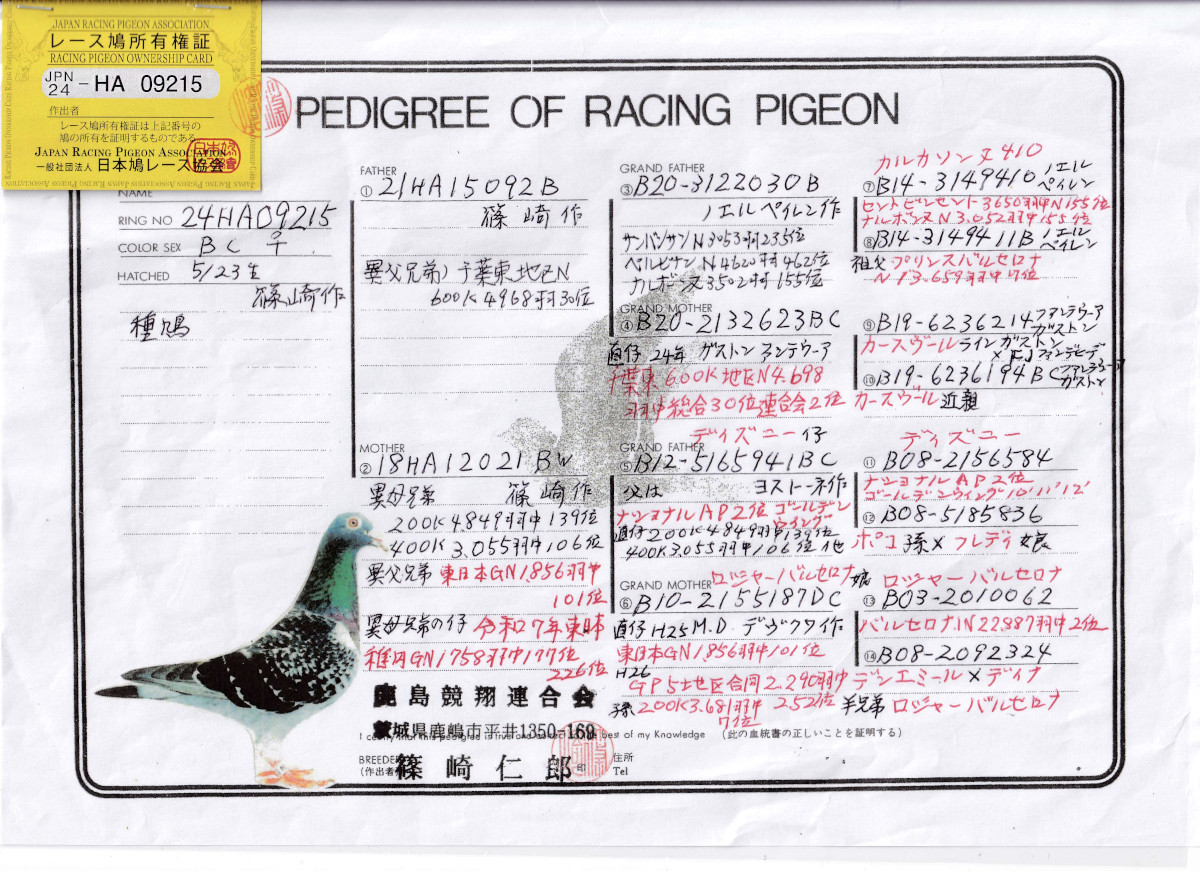 JAPAN RACING PIGEON ASSOCIATION
レース鳩所有権証
RACING PIGEON OWNERSHIP CARD
JPN
24 - HA 09215
作出者
レース鳩所有権証は上記番号の
鳩の所有を証明するものである
JAPAN RACING PIGEON ASSOCIATION
一般社団法人 日本鳩レース協会
PEDIGREE OF RACING PIGEON
NAME
RING NO 24HA09215
COLOR SEX BC ♀
HATCHED 5/23生
篠崎作
種鳩
FATHER
① 21HA15092B
篠崎作
異父兄弟) 千葉東地区N
600K4968羽30位
MOTHER
② 18HA12021BW
異母兄弟 篠崎作
200K4849羽中139位
400K3.055羽中106位
異父兄弟 東日本GN1,856羽中
101位
異母兄弟の仔 令和7年東日本
稚内GN1758羽中177位
226位
GRAND FATHER
③ B20-3122030B
ノエルペイレン作
サンバンサンN3053羽235位
ペルピナンN4620羽462位
ナルボンヌ3502羽155位
GRAND MOTHER
④ B20-2132623BC
直仔 24年 ガストンファンデウーア
千葉東600K地区N4.698
羽中総合30位連合会2位
ディズニー仔
GRAND FATHER
⑤ B12-5165941BC
父は ヨストーネ作
ナショナルAP2位 ゴールデン
ウイング
直仔200K4849羽中139位
400K3.055羽中106位 他
GRAND MOTHER ロジャーバルセロナ娘
⑥ B10-2155187DC
直仔H25M.D デヴクワ作
東日本GN1,856羽中101位
H26
GP5地区合同2.290羽中
252位
孫200K3.681羽中
7位
カルカソンヌ410
⑦ B14-3149410 ノエル
ペイレン
セントビンセント3650羽中N155位
ナルボンヌN3.052羽中155位
⑧ B14-3149411B ノエル
ペイレン
祖父プリンスバルセロナ
N13.659羽中7位
⑨ B19-6236214 ファンデウーア
ガストン
カースヴールラインガストン
⑩ B19-6236194BC ファンデウーア
ガストン
カースヴール近親
ディズニー
⑪ B08-2156584
ナショナルAP2位
ゴールデンウイング10'11'12'
⑫ B08-5185836
ポコ孫×フレディ娘
ロジャーバルセロナ
⑬ B03-2010062
バルセロナIN22887羽中2位
⑭ B08-2092324
デンエミール×ディナ
半兄弟ロジャーバルセロナ
鹿島競翔連合会
茨城県鹿嶋市平井1350-169
best of my Knowledge (此の血統書の正しいことを証明する)
BREEDER
(作出者)
篠崎仁郎
印
住所
Tel